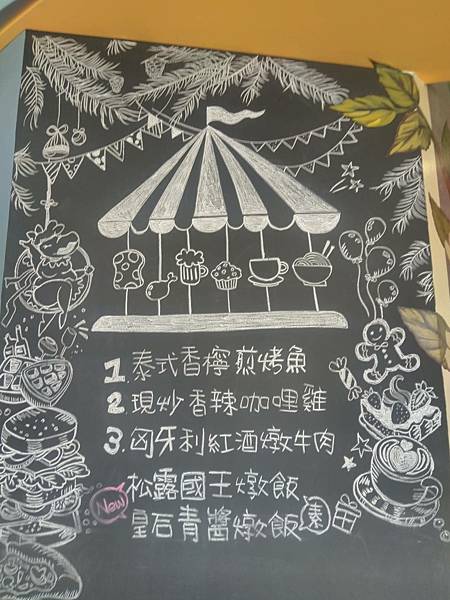 1. 泰式香檸煎烤魚
2. 現炒香辣咖哩雞
3. 匈牙利紅酒燉牛肉
New 松露國王燉飯
皇后青醬燉飯 素